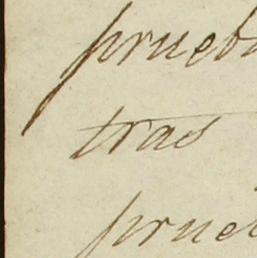 prueb
tras
prue